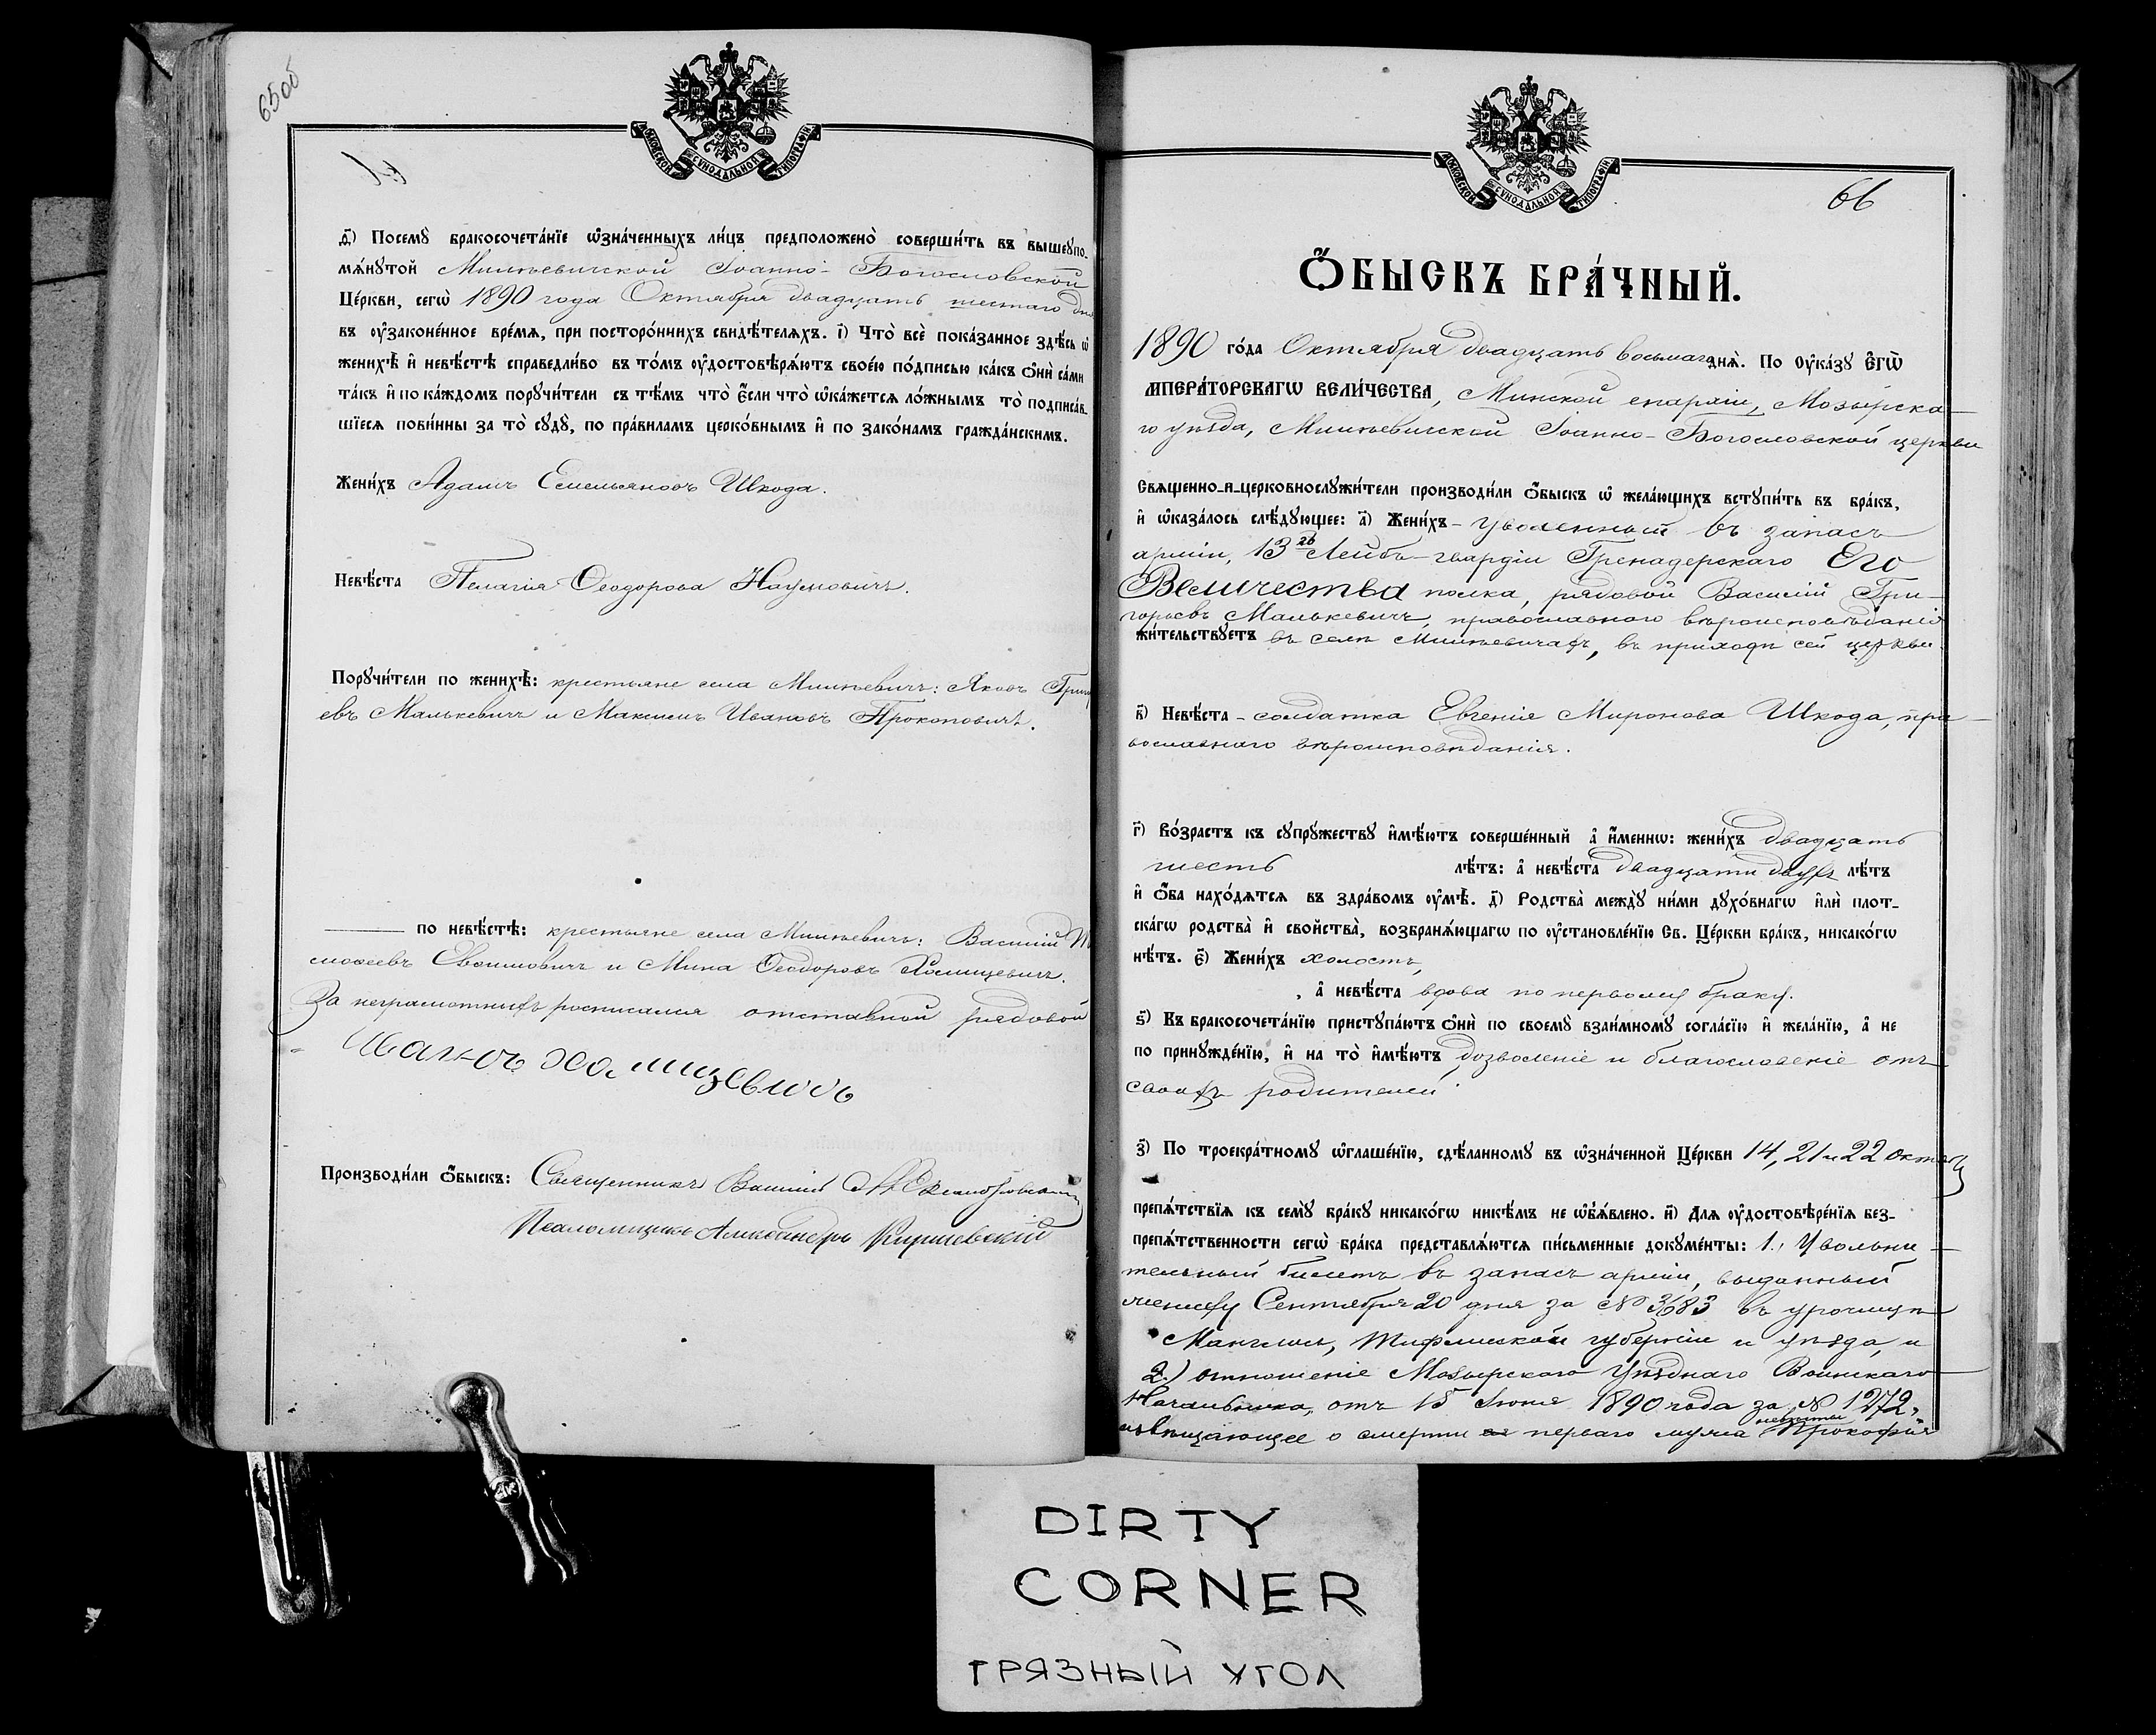 65об
МОСКОВСКОЙ СѴНОДАЛЬНОЙ ТИПОГРАФІИ
ѳ҃) Посемꙋ̀ бракосочета́нїе ѡ҆зна́ченныхъ ли́цъ предположено̀ соверши́ть въ вышеꙋпо-
мѧ́нꙋтой Милевичской Іоанно-Богословской
Це́ркви, сегѡ̀ 1890 года Октября двадцать шестаго дня
въ ᲂу҆законе́нное вре́мѧ, при посторо́ннихъ свидѣ́телѧхъ. і҃) Что̀ всѐ пока́занное здѣ́сь ѡ҆
женихѣ̀ и҆ невѣ́стѣ справедли́во въ то́мъ ᲂу҆достовѣрѧ́ютъ свое́ю по́дписью ка́къ ѻ҆нѝ са́ми
та́къ и҆ по ка́ждомъ порꙋчи́тели съ тѣ́мъ что̀ є҆́сли что̀ ѡ҆ка́жетсѧ ло́жнымъ то̀ подписа́в-
шїесѧ пови́нны за то̀ сꙋдꙋ̀, по пра́виламъ церко́внымъ и҆ по зако́намъ гражда́нскимъ.
Жени́хъ Адамъ Емельяновъ Шкода.
Невѣ́ста Пелагія Ѳеодорова Наумовичъ.
Порꙋчи́тели по женихѣ̀: крестьяне села Милевичъ: Яковъ Григ
евъ Малькевичъ и Максимъ Ивановъ Прокоповичъ.
по невѣ́стѣ: крестьяне села Милевичъ: Василій Ти
моѳеевъ Евѳимовичъ и Мина Ѳеодоровъ Холмицевичъ.
За неграмотныхъ росписался отставной рядовой
Иванъ Холмицевичъ
Производи́ли ѻ҆́быскъ: Священникъ Василій
Псаломщикъ Александръ
МОСКОВСКОЙ СѴНОДАЛЬНОЙ ТИПОГРАФІИ
66
Ѻ҆́БЫСКЪ БРА́ЧНЫЙ.
1890 го́да Октября двадцать восьмаго днѧ̀. По ᲂу҆ка́зꙋ Є҆ГѠ̀
ИМПЕРА́ТОРСКАГѠ ВЕЛИ́ЧЕСТВА, Минской епархіи, Мозырска-
го уѣзда, Милевичской Іоанно-Богословской церкви
Свѧщенно-и-церковнослꙋжи́тели производи́ли ѻ҆́быскъ ѡ҆ жела́ющихъ встꙋпи́ть въ бра́къ,
и҆ ѡ҆каза́лось слѣ́дꙋющее: а҃) Жени́хъ - уволенный въ запасъ
арміи, 13го Лейбъ-гвардіи Гренадерскаго Его
Величества полка, рядовой Василій Гри-
горьевъ Малькевичъ, православнаго вѣроисповѣданія
жи́тельствꙋетъ въ селѣ Милевичахъ, въ приходѣ сей церкви.
в҃) Невѣ́ста - солдатка Евгенія Миронова Шкода, пра-
вославнаго вѣроисповѣданія.
г҃) Во́зрастъ къ сꙋпрꙋ́жествꙋ и҆мѣ́ютъ соверше́нный а҆ и҆́меннѡ: жени́хъ двадцать
шесть лѣ́тъ: а҆ невѣ́ста двадцати двухъ лѣ́тъ
и҆ ѻ҆́ба нахо́дѧтсѧ въ здра́вомъ ᲂу҆мѣ̀. д҃) Родства̀ междꙋ̀ ни́ми дꙋхо́внагѡ и҆лѝ плот-
ска́гѡ родства̀ и҆ сво́йства̀, возбранѧ́ющагѡ по ᲂу҆становле́нїю Св. Це́ркви бра́къ, никако́гѡ
нѣ́тъ. є҃) Жени́хъ холостъ,
, а҆ невѣ́ста вдова по первому браку.
ѕ҃) Къ бракосочета́нїю пристꙋпа́ютъ ѻ҆нѝ по своемꙋ̀ взаи́мномꙋ согла́сїю и҆ жела́нїю, а҆ не
по принꙋжде́нїю, и҆ на то̀ и҆мѣ́ютъ дозволеніе и благословеніе отъ
своихъ родителей
з҃) По троекра́тномꙋ ѡ҆глаше́нїю, сдѣ́ланномꙋ въ ѡ҆зна́ченной Це́ркви 14, 21 и 22 октяб
препѧ́тствїѧ къ семꙋ̀ бра́кꙋ никако́гѡ никѣ́мъ не ѡ҆б̾ѧ́влено. и҃) Длѧ ᲂу҆достовѣре́нїѧ без-
препѧ́тственности сегѡ̀ бра́ка представлѧ́ютсѧ пи́сьменные докꙋме́нты: 1., Увольни-
тельный билетъ въ запасъ арміи, выданный
жениху Сентября 20 дня за № 3683 въ урочищѣ
Манглисъ, Тифлисской губерніи и уѣзда, и
2.) отношеніе Мозырскаго Уѣзднаго Воинскаго
Начальника, отъ 15 Іюня 1890 года за № 1272,
извѣщающее о смерти перваго мужа невѣсты Прокофія
DIRTY
CORNER
ГРЯЗНЫЙ УГОЛ